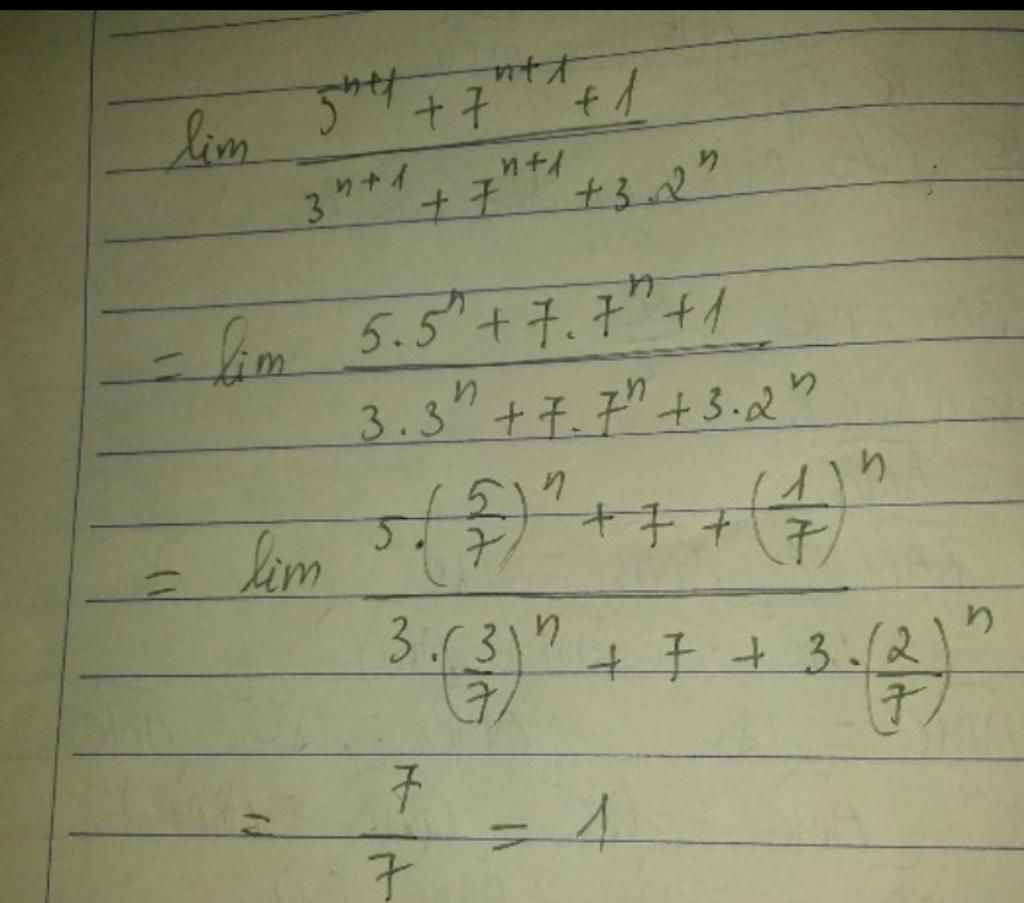 lim (5^{n+1} + 7^{n+1} + 1) / (3^{n+1} + 7^{n+1} + 3.2^n)
= lim (5.5^n + 7.7^n + 1) / (3.3^n + 7.7^n + 3.2^n)
= lim (5.(5/7)^n + 7 + (1/7)^n) / (3.(3/7)^n + 7 + 3.(2/7)^n)
= 7/7 = 1